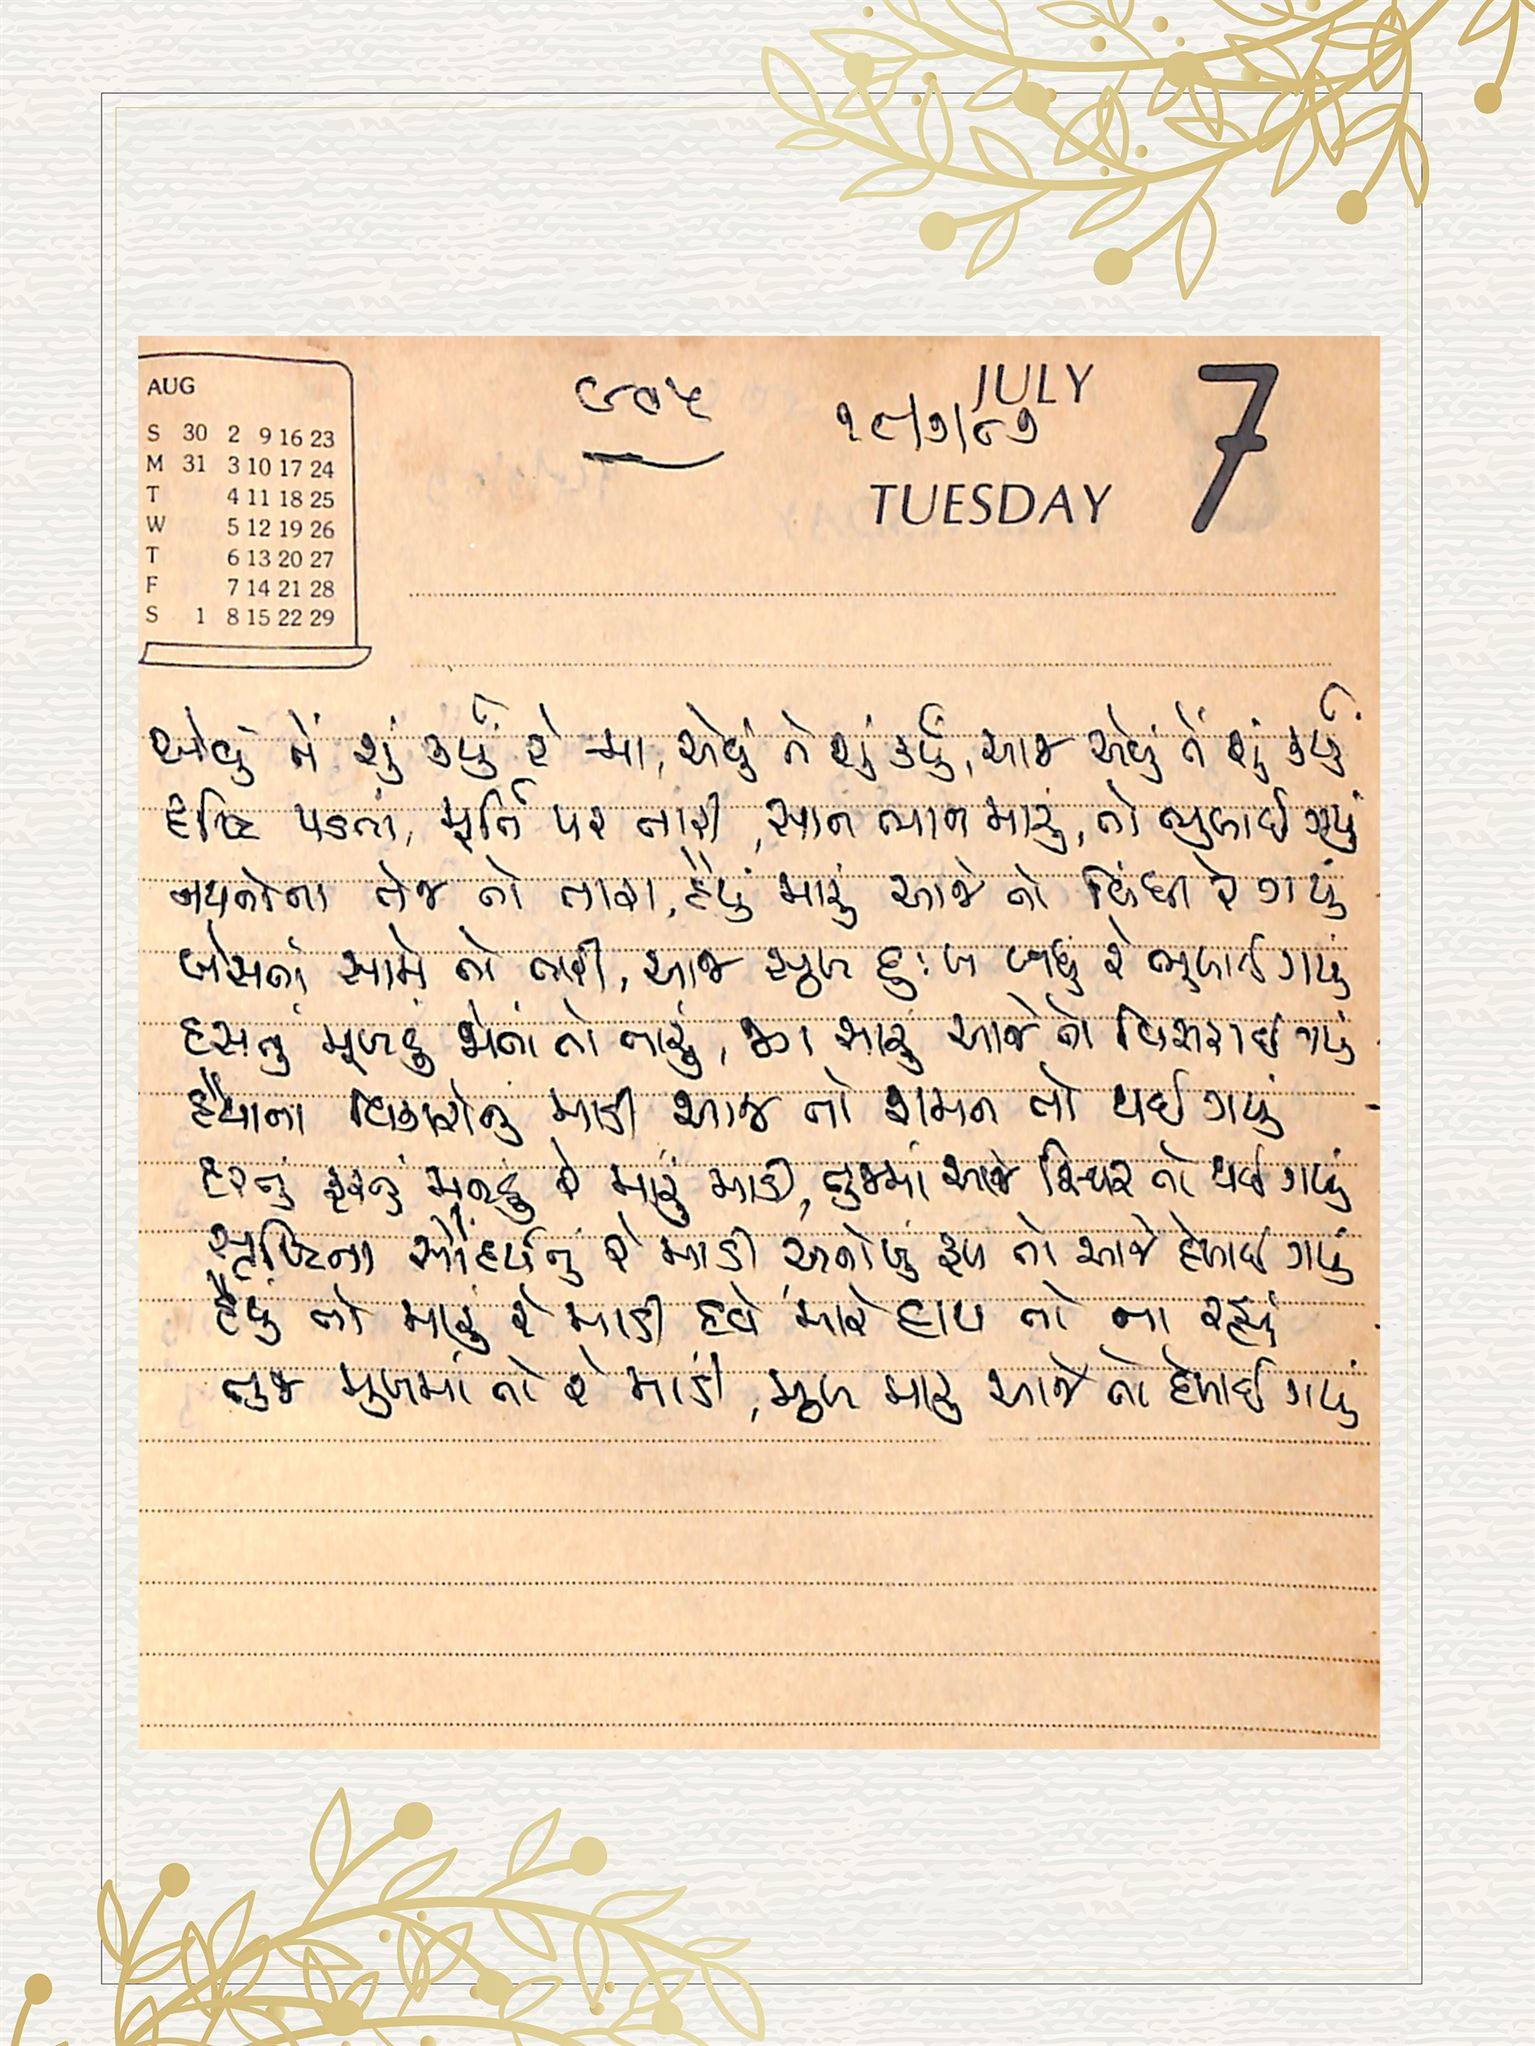 AUG
S 30 2 9 16 23
M 31 3 10 17 24
T 4 11 18 25
W 5 12 19 26
T 6 13 20 27
F 7 14 21 28
S 1 8 15 22 29
JULY
૧૯/૭/૮૭
TUESDAY
7
એવું તેં શું કર્યું રે મા, એવું તે શું કર્યું, આજ એવું તેં શું કર્યું
દૃષ્ટિ પડતાં, મૂર્તિ પર તારી, સાન ભાન મારું, તો ભુલાઈ ગયું
નયનોના તેજ તો તારા, હૈયું મારું આજે તો વિંધી રે ગયું
બેસતાં સામે તો તારી, આજ સુખ દુઃખ બધું રે ભુલાઈ ગયું
હસતું મુખડું જોતાં તો તારું, મારું આજે તો વિસરાઈ ગયું
હૈયાના વિકારોનું માડી આજ તો શમન તો થઈ ગયું
ફરતું ફરતું મનડું રે મારું માડી, તુજમાં આજે સ્થિર તો થઈ ગયું
સૃષ્ટિના સૌંદર્યનું રે માડી અનોખું રૂપ તો આજે દેખાઈ ગયું
હૈયું તો મારું રે માડી હવે મારે હાથ તો ના રહ્યું
તુજ મુખમાં તો રે માડી, મુખ મારું આજે તો દેખાઈ ગયું